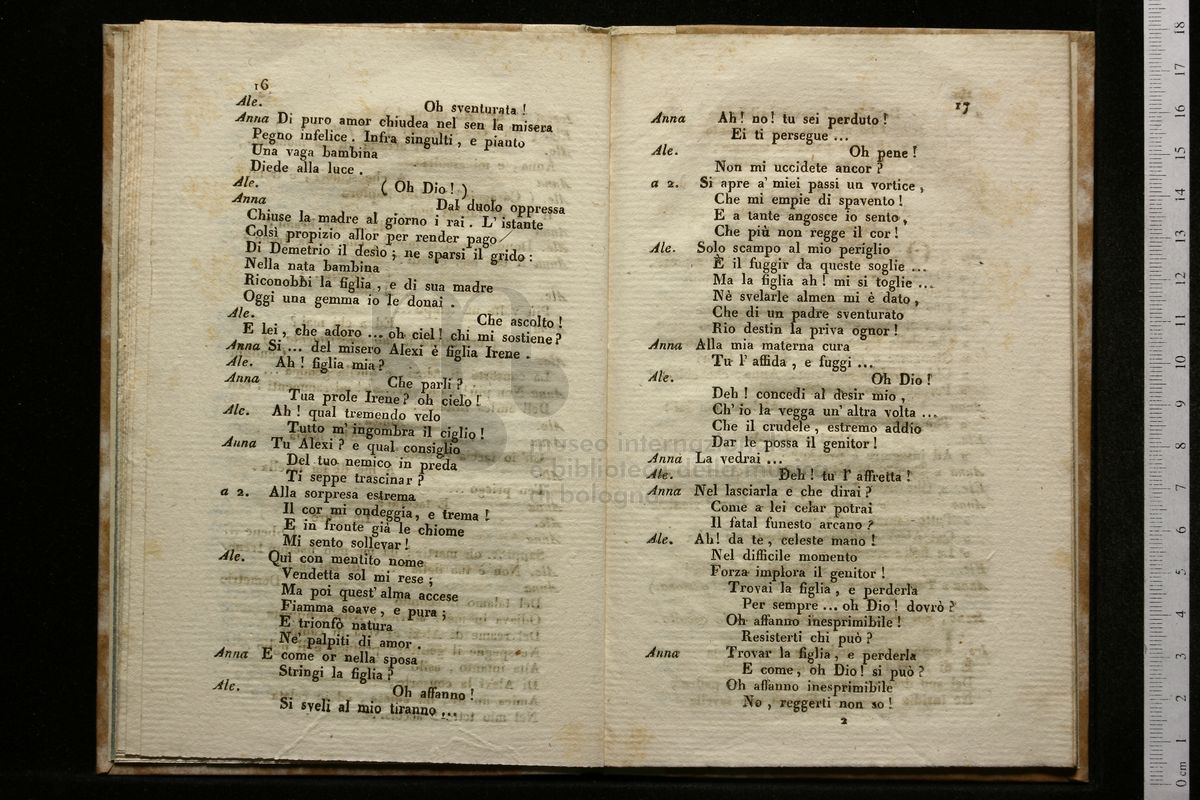 16
Ale. Oh sventurata !
Anna Di puro amor chiudea nel sen la misera
Pegno infelice . Infra singulti , e pianto
Una vaga bambina
Diede alla luce .
Ale. ( Oh Dio ! )
Anna Dal duolo oppressa
Chiuse la madre al giorno i rai . L' istante
Colsi propizio allor per render pago
Di Demetrio il desìo ; ne sparsi il grido :
Nella nata bambina
Riconobbi la figlia , e di sua madre
Oggi una gemma io le donai .
Ale. Che ascolto !
E lei , che adoro ... oh ciel ! chi mi sostiene ?
Anna Si ... del misero Alexi è figlia Irene .
Ale. Ah ! figlia mia ?
Anna Che parli ?
Tua prole Irene ? oh cielo !
Ale. Ah ! qual tremendo velo
Tutto m' ingombra il ciglio !
Anna Tu Alexi ? e qual consiglio
Del tuo nemico in preda
Ti seppe trascinar ?
a 2. Alla sorpresa estrema
Il cor mi ondeggia , e trema !
E in fronte già le chiome
Mi sento sollevar !
Ale. Quì con mentito nome
Vendetta sol mi rese ;
Ma poi quest' alma accese
Fiamma soave , e pura ;
E trionfò natura
Ne' palpiti di amor .
Anna E come or nella sposa
Stringi la figlia ?
Ale. Oh affanno !
Si sveli al mio tiranno ...
17
Anna Ah ! no ! tu sei perduto !
Ei ti persegue ...
Ale. Oh pene !
Non mi uccidete ancor ?
a 2. Si apre a' miei passi un vortice ,
Che mi empie di spavento !
E a tante angosce io sento ,
Che più non regge il cor !
Ale. Solo scampo al mio periglio
È il fuggir da queste soglie ...
Ma la figlia ah ! mi si toglie ...
Nè svelarle almen mi è dato ,
Che di un padre sventurato
Rio destin la priva ognor !
Anna Alla mia materna cura
Tu l' affida , e fuggi ...
Ale. Oh Dio !
Deh ! concedi al desir mio ,
Ch' io la vegga un' altra volta ...
Che il crudele , estremo addio
Dar le possa il genitor !
Anna La vedrai ...
Ale. Deh ! tu l' affretta !
Anna Nel lasciarla e che dirai ?
Come a lei celar potrai
Il fatal funesto arcano ?
Ale. Ah ! da te , celeste mano !
Nel difficile momento
Forza implora il genitor !
Trovai la figlia , e perderla
Per sempre ... oh Dio ! dovrò ?
Oh affanno inesprimibile !
Resisterti chi può ?
Anna Trovar la figlia , e perderla
E come , oh Dio ! si può ?
Oh affanno inesprimibile
No , reggerti non so !
2
museo internaz
e biblioteca della mu
di bologna
0 cm 1 2 3 4 5 6 7 8 9 10 11 12 13 14 15 16 17 18